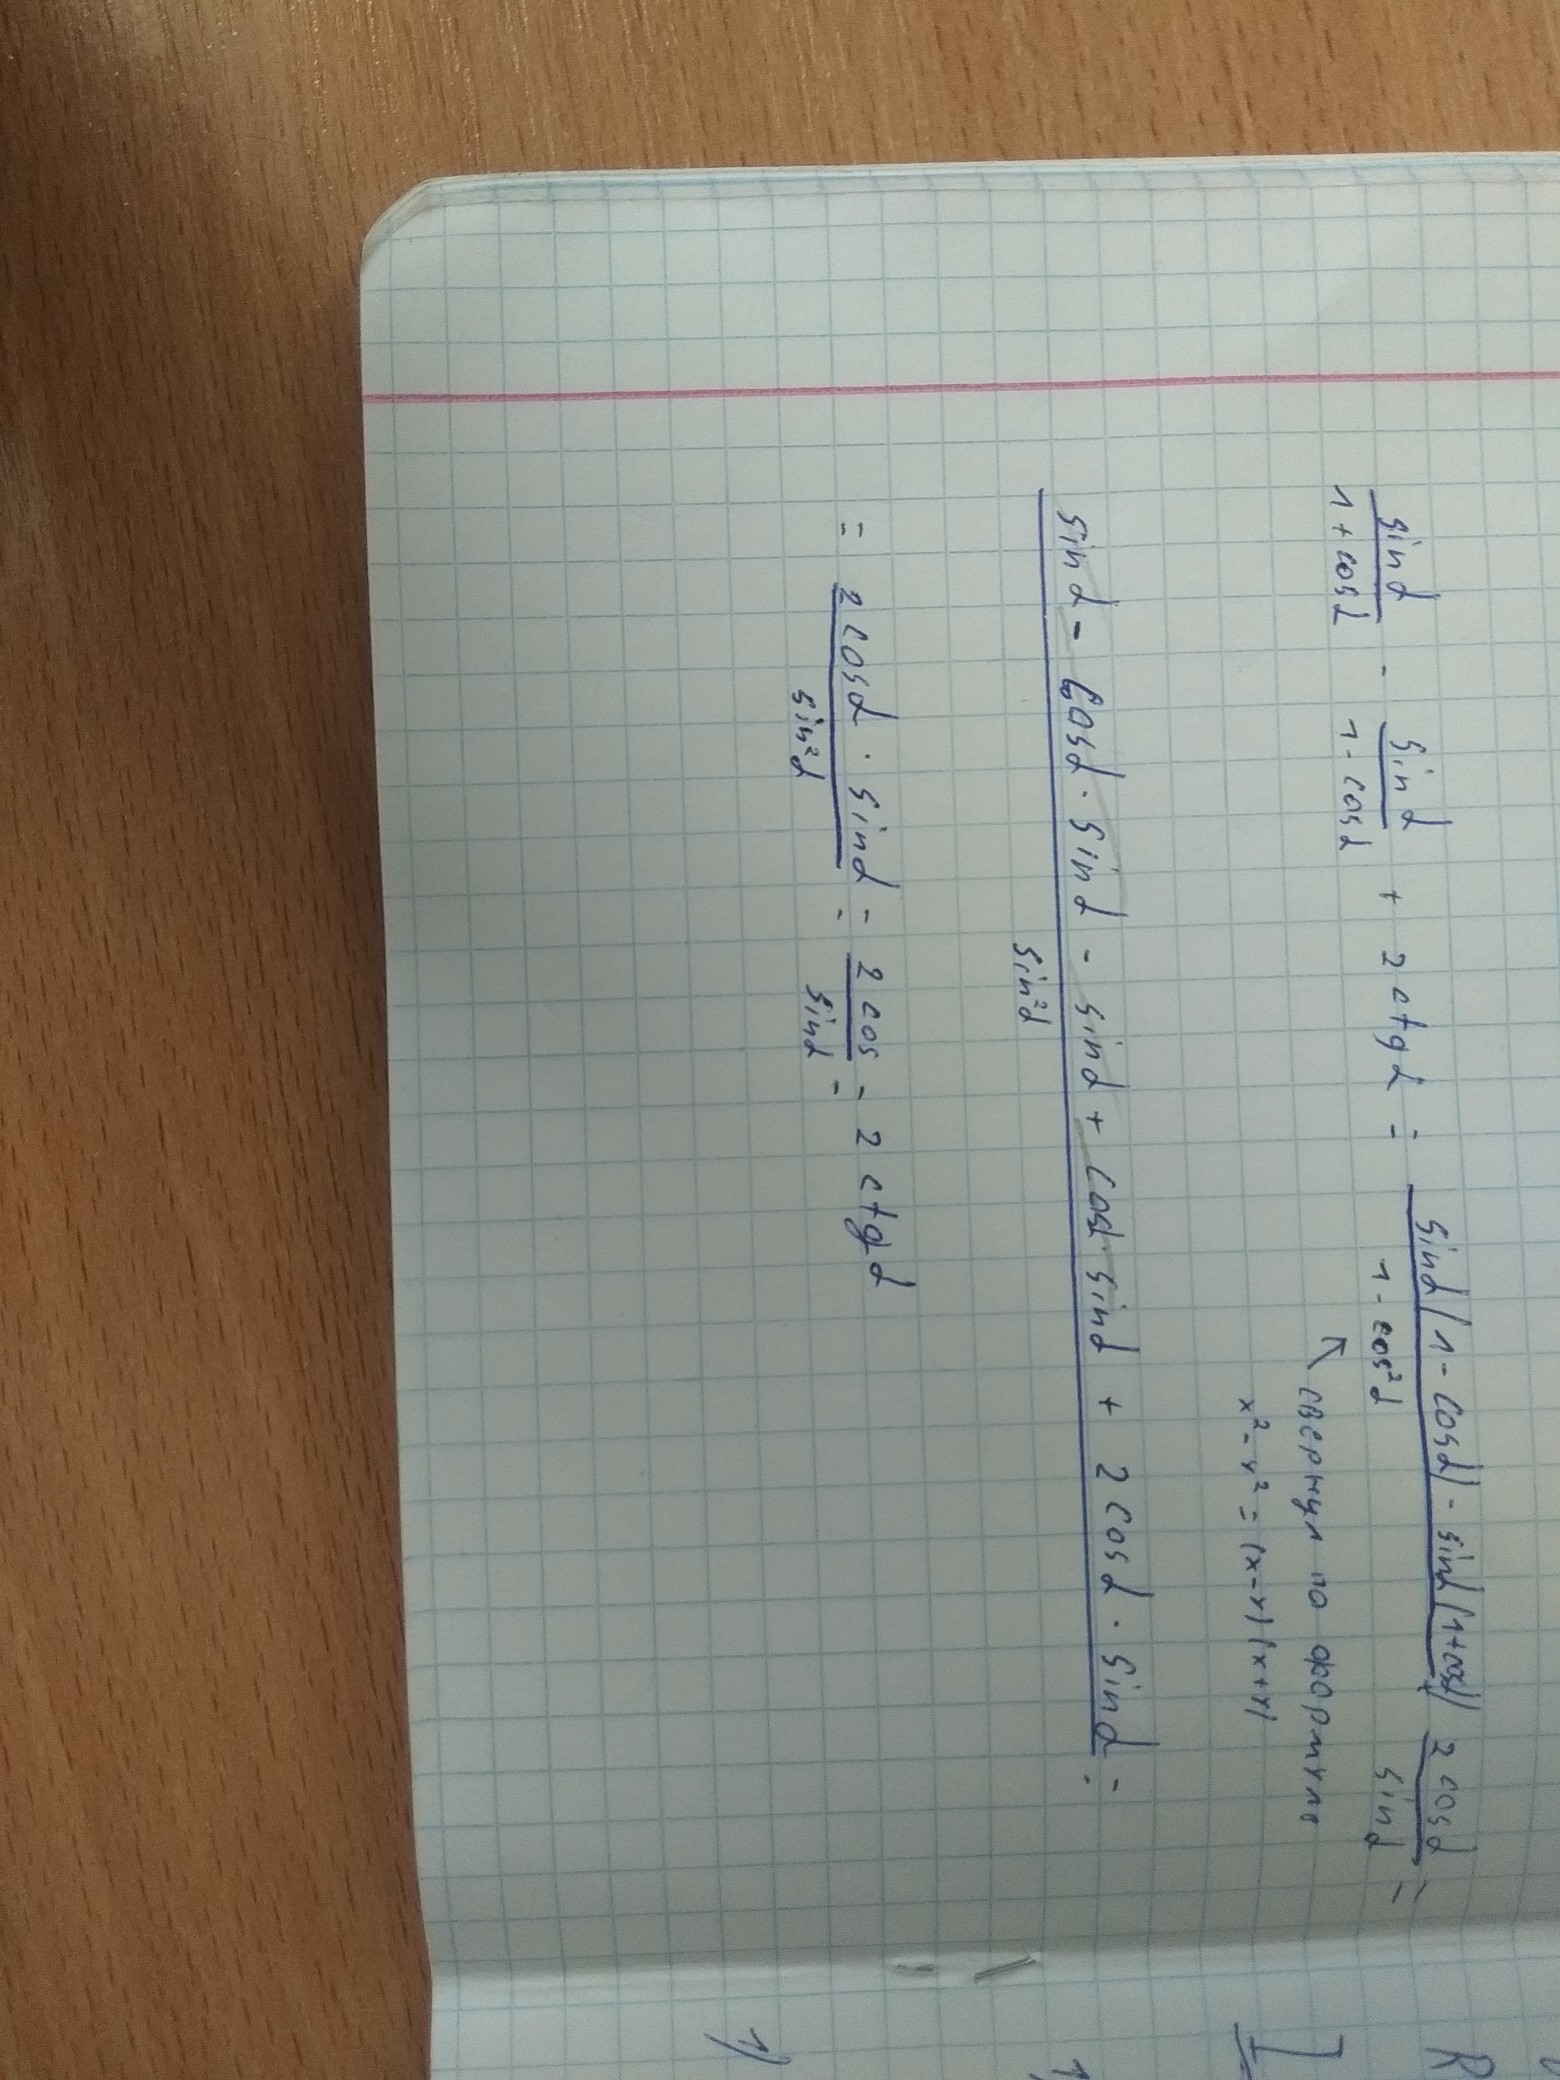 sinα/(1+cosα) - sinα/(1-cosα) + 2ctgα = (sinα(1-cosα) - sinα(1+cosα))/(1-cos²α) 2cosα/sinα =
↖ свернул по формуле
x²-y² = (x-y)(x+y)
(sinα - cosα · sinα - sinα + cosα · sinα + 2cosα · sinα)/sin²α =
= (2cosα · sinα)/sin²α = 2cos/sinα = 2ctgα
R
1)
1)